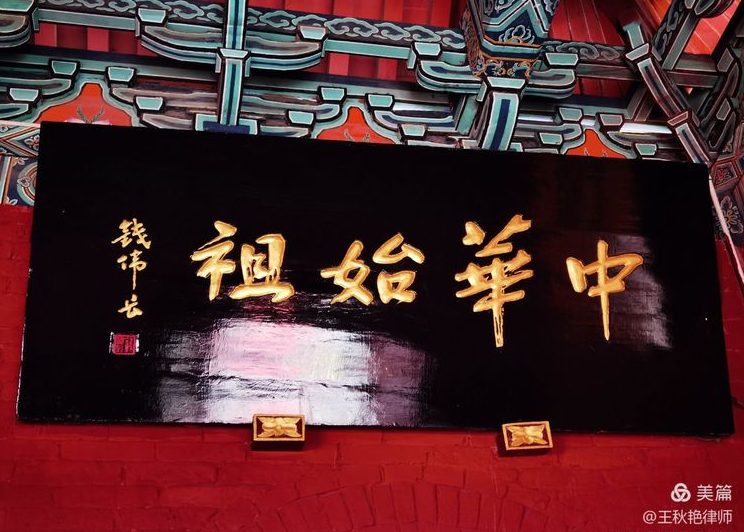 中華始祖
錢伟长
美篇
@王秋艳律师